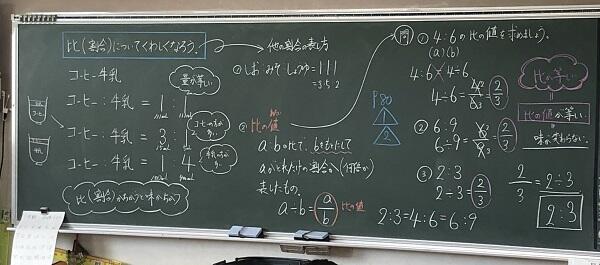 比(割合)についてくわしくなろう。
コーヒー牛乳
量が等しい
コーヒー：牛乳＝1：1
コーヒー：牛乳＝3：1
コーヒー：牛乳＝1：4
コーヒー
牛乳
比(割合)がちがうと味がちがう
他の割合の表し方
しお みそ しょうゆ
比の値
a：bの比で、bをもとにして
aがどれだけの割合か
表したもの。
a÷b＝a/b 比の値
P80
1
2
問
① 4：6の比の値を求めましょう。
(a)(b)
4：6 4÷6
4÷6＝4/6＝2/3
② 6：9
6÷9＝6/9＝2/3
③ 2：3
2÷3＝2/3
2：3＝4：6＝6：9
比が等しい
比の値が等しい
味が変わらない
2/3＝2÷3
2：3